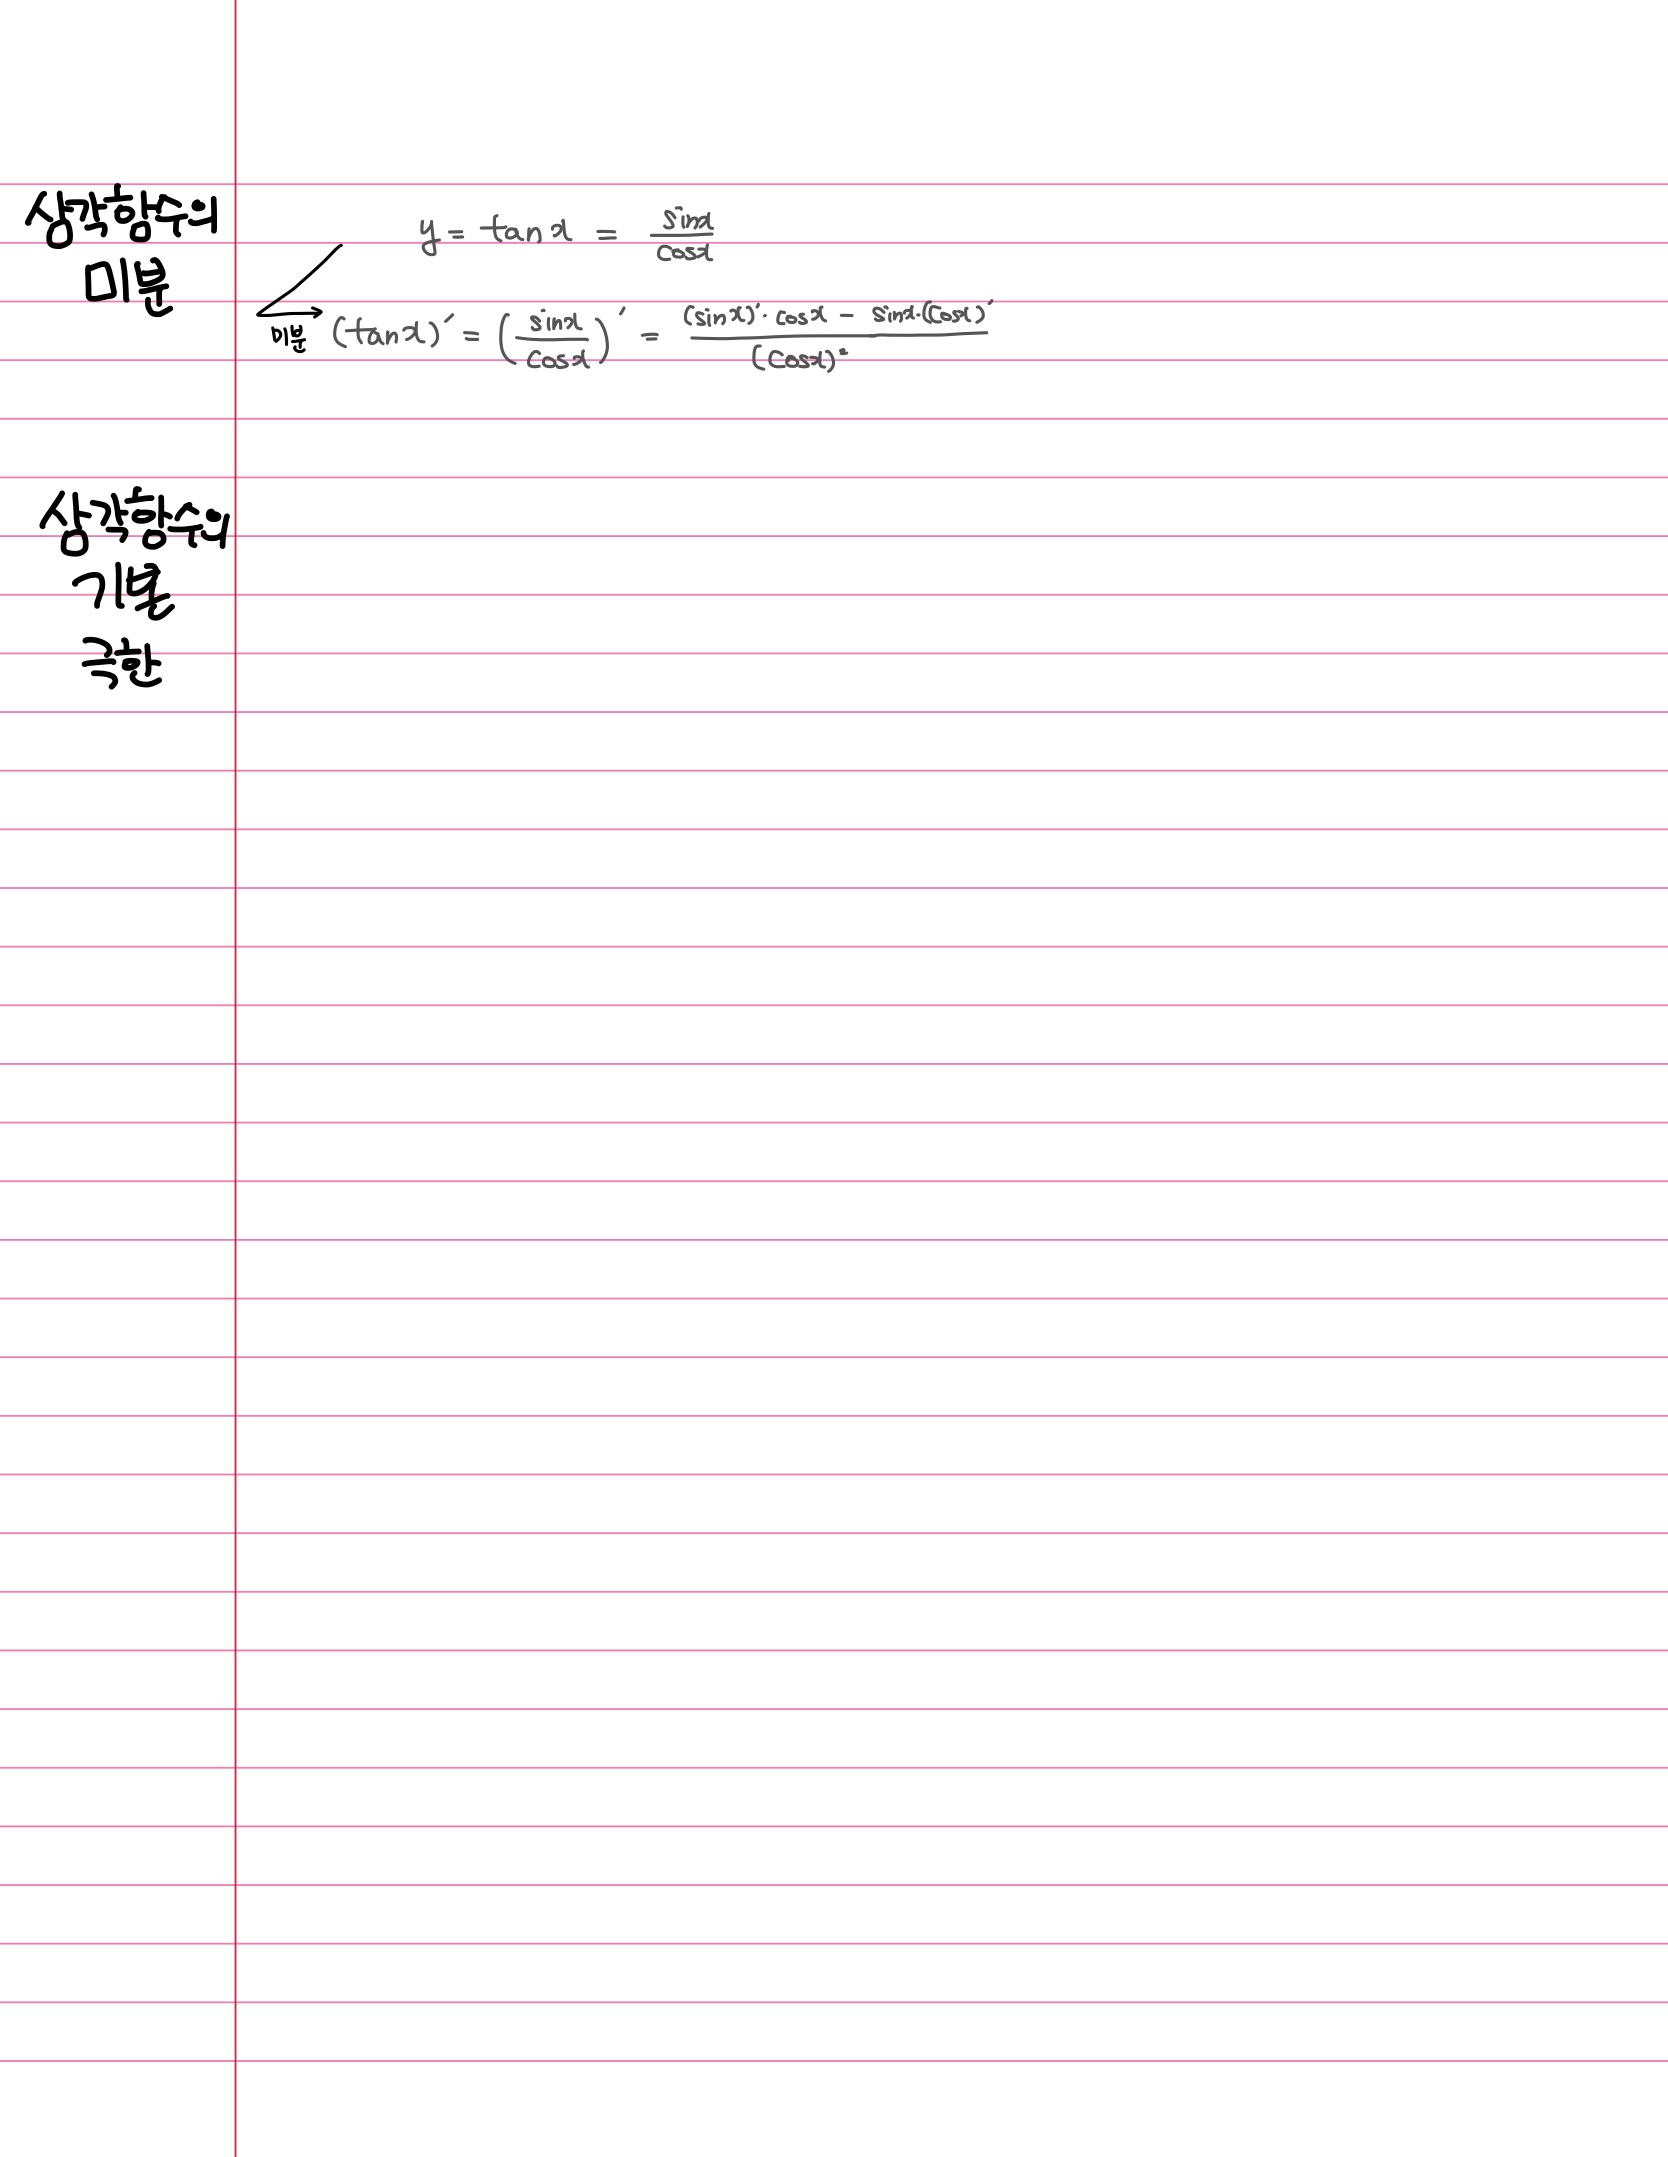 삼각함수의
미분
y = tanx = sinx/cosx
미분 (tanx)′ = (sinx/cosx)′ = ((sinx)′·cosx − sinx·(cosx)′)/(cosx)²
삼각함수의
기본
극한